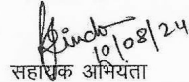 10/08/24
सहायक अभियंता